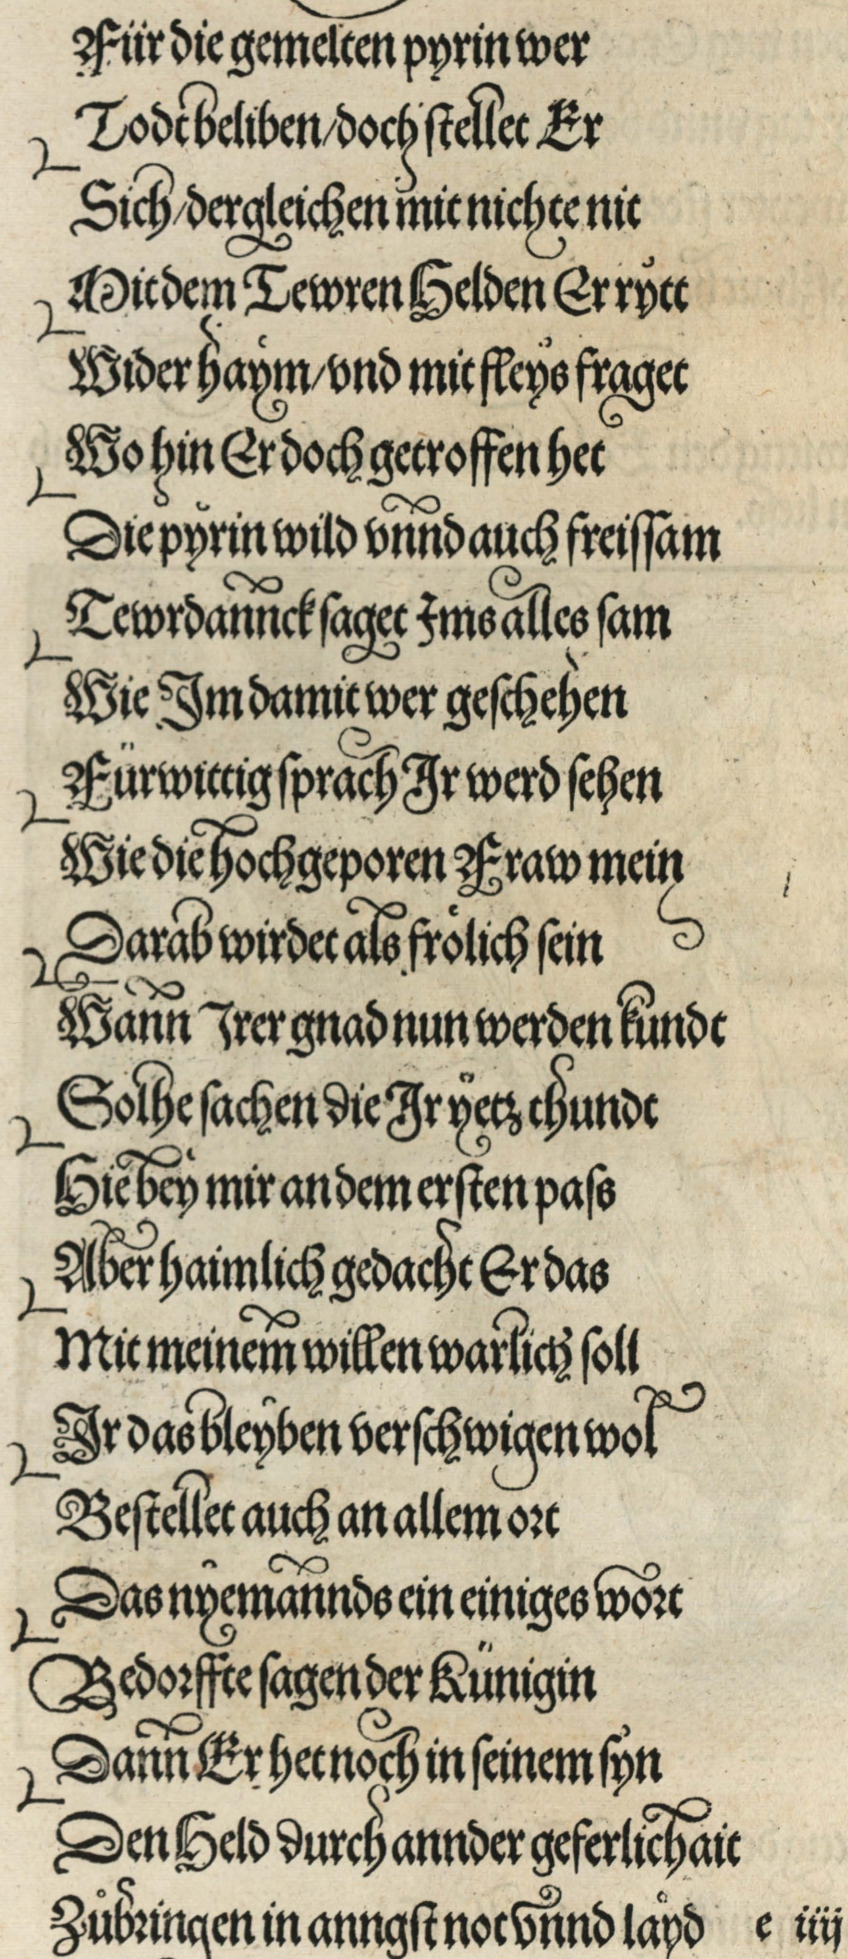 Für die gemelten pyrin wer
Todt beliben/doch stellet Er
Sich/dergleichen mit nichte nit
Mit dem Tewren Helden Er rytt
Wider haym/vnd mit fleys fraget
Wo hin Er doch getroffen het
Die pyrin wild vnnd auch freissam
Tewrdannck saget Ims alles sam
Wie Im damit wer geschehen
Fürwittig sprach Ir werd sehen
Wie die hochgeporen Fraw mein
Darab wirdet als frölich sein
Wann Irer gnad nun werden kundt
Solhe sachen die Ir yetz thundt
Hie bey mir an dem ersten pass
Aber haimlich gedacht Er das
Mit meinem willen warlich soll
Ir das bleyben verschwigen wol
Bestellet auch an allem ort
Das nyemannds ein einiges wort
Bedorffte sagen der Künigin
Dann Er het noch in seinem syn
Den Held durch annder geferlichait
Zůbringen in anngst not vnnd layd e iiij